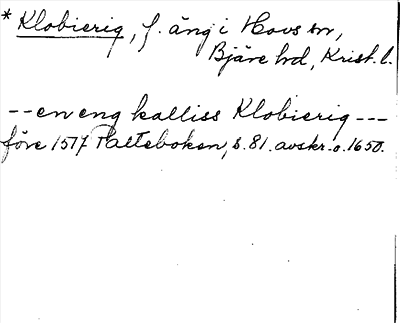 * Klobierig, f. äng i Hovs sn,
Bjäre hd, Krist. l.
-- en eng kalliss Klobierig ---
före 1517 Palteboken, s. 81. avskr. o. 1650.